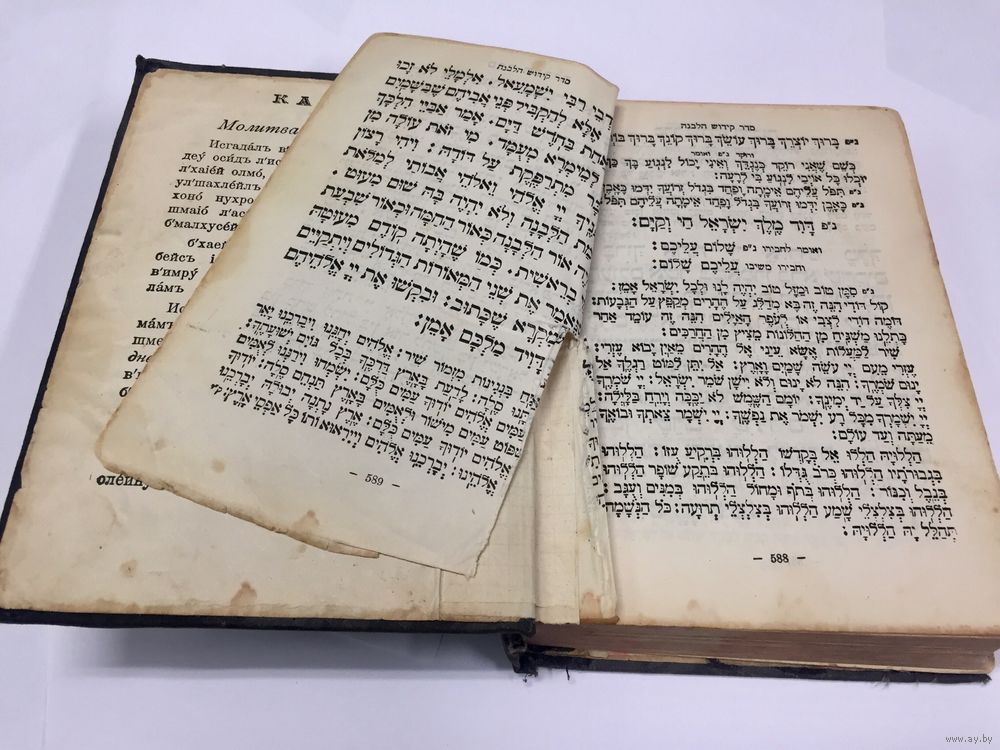 К А
Молитва
Исгадалъ в'
деу́ осидъ л'ис
л'хаіе́й олмо́,
ул'шахле́йлъ
хоно́ нухро
шмаіо́ л'ас
б'малхусе́й
б'хаей
бейсъ і
в'имру́
ламъ
Ис
ма́мъ
щме
дно
в'и
б'
סדר קידוש הלבנה
דבי רבי ישמעאל. אלמלי לא זכו
אלא להקביל פני אביהם שבשמים
אחת בחדש דים. אמר אביי הלכך
למימרא מעמד. מי זאת עולה מן
מתרפקת על דודה: ויהי רצון
יך יי אלהי ואלהי אבותי למלאת
הלבנה ולא יהיה בה שום מעוט.
יהי אור הלבנה כאור החמה וכאור שבעת
בראשית. כמו שהיתה קודם מעוטה
אמר את שני המאורות הגדולים ויתקיים
מקרא שכתוב: ובקשו את יי אלהיהם
דויד מלכם אמן:
בנגינות מזמור שיר: אלהים יחננו ויברכנו יאר
אתנו סלה: לדעת בארץ דרכך בכל גוים ישועתך:
עמים אלהים יודוך עמים כלם: ישמחו וירננו לאמים
תשפוט עמים מישור ולאמים בארץ תנחם סלה: יודוך
אלהים יודוך עמים כלם: ארץ נתנה יבולה יברכנו
אלהינו: יברכנו אלהים וייראו אותו כל אפסי ארץ:
– 589 –
סדר קידוש הלבנה
ג״פ ברוך יוצרך ברוך עושך ברוך קונך ברוך
וירקד ג״פ ואומר
כשם שאני רוקד כנגדך ואיני יכול לנגוע בך כך
יוכלו כל אויבי לנגוע בי לרעה:
ג״פ תפל עליהם אימתה ופחד בגדל זרועך ידמו כאבן
ג״פ כאבן ידמו זרועך בגדל ופחד אימתה עליהם תפל
ג״פ דוד מלך ישראל חי וקים:
ואומר לחבירו ג״פ שלום עליכם:
וחבירו משיבו עליכם שלום:
ג״פ סמן טוב ומזל טוב יהיה לנו ולכל ישראל אמן:
קול דודי הנה זה בא מדלג על ההרים מקפץ על הגבעות:
דומה דודי לצבי או לעפר האילים הנה זה עומד אחר
כתלנו משגיח מן החלונות מציץ מן החרכים:
שיר למעלות אשא עיני אל ההרים מאין יבוא עזרי:
עזרי מעם יי עשה שמים וארץ: אל יתן למוט רגלך אל
ינום שמרך: הנה לא ינום ולא יישן שמר ישראל: יי שמרך
יי צלך על יד ימינך: יומם השמש לא יככה וירח בלילה:
יי ישמרך מכל רע ישמר את נפשך: יי ישמר צאתך ובואך
מעתה ועד עולם:
הללויה הללו אל בקדשו הללוהו ברקיע עזו: הללוהו
בגבורתיו הללוהו כרב גדלו: הללוהו בתקע שופר הללוהו
בנבל וכנור: הללוהו בתף ומחול הללוהו במנים וענב:
הללוהו בצלצלי שמע הללוהו בצלצלי תרועה: כל הנשמה
תהלל יה הללויה:
– 588 –
www.ay.by